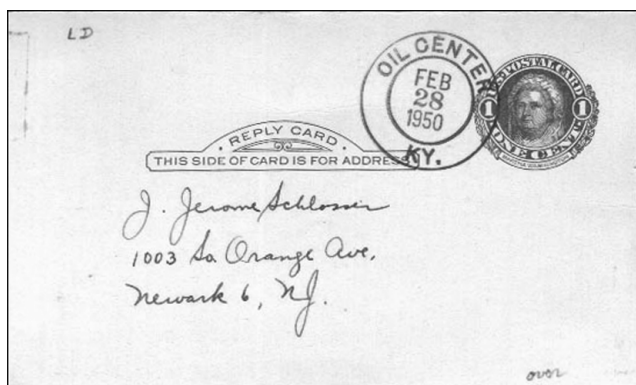 LD
OIL CENTER
FEB
28
1950
KY.
U.S. POSTAL CARD
1 1
ONE CENT
MARTHA WASHINGTON
REPLY CARD
THIS SIDE OF CARD IS FOR ADDRESS
J. Jerome Schlosser
1003 So Orange Ave.
Newark 6, NJ.
over